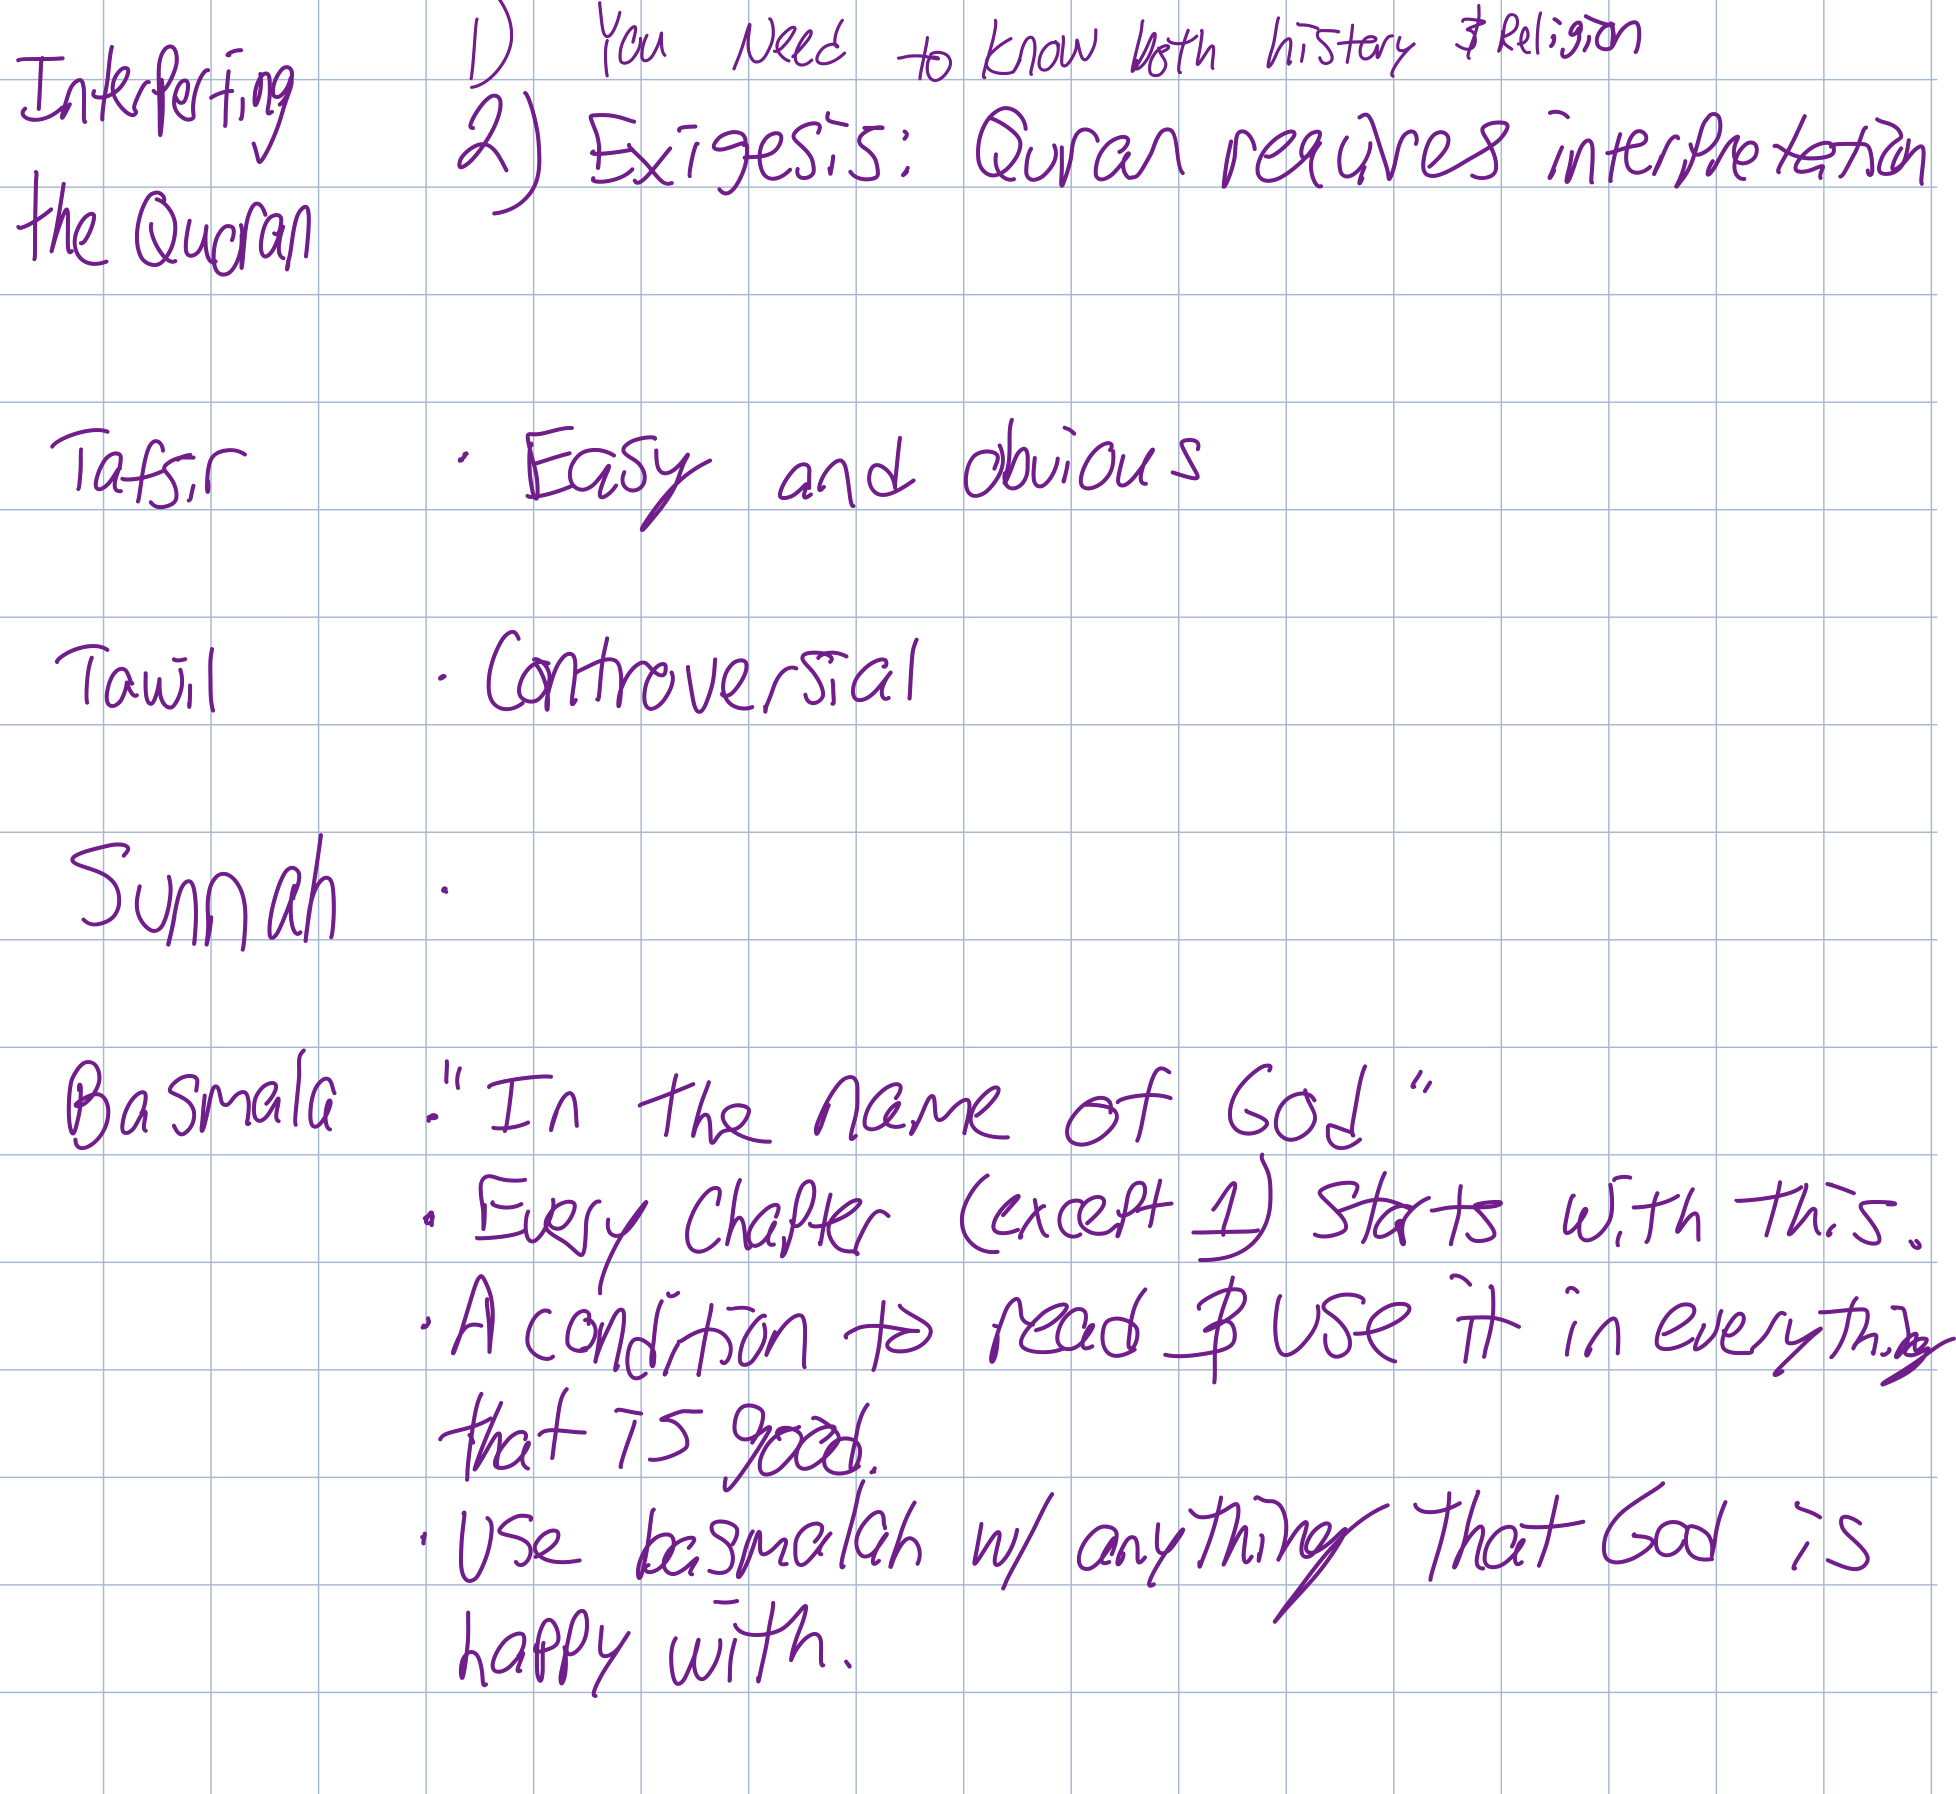 Interpreting
the Quran
1) You Need to know both history & Religion
2) Exigesis: Quran requires interpretation
Tafsir · Easy and obvious
Tawil · Controversial
Sunnah ·
Basmala · "In the name of God"
· Every Chapter (except 1) starts with this.
· A condition to read & use it in everything
that is good.
· Use basmalah w/ anything that God is
happy with.